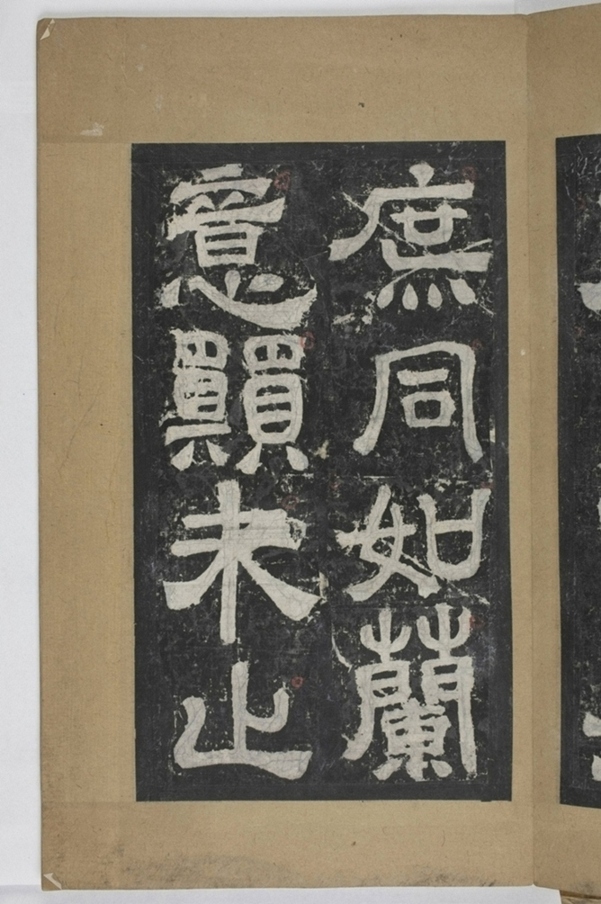 庶同如蘭
意願未止